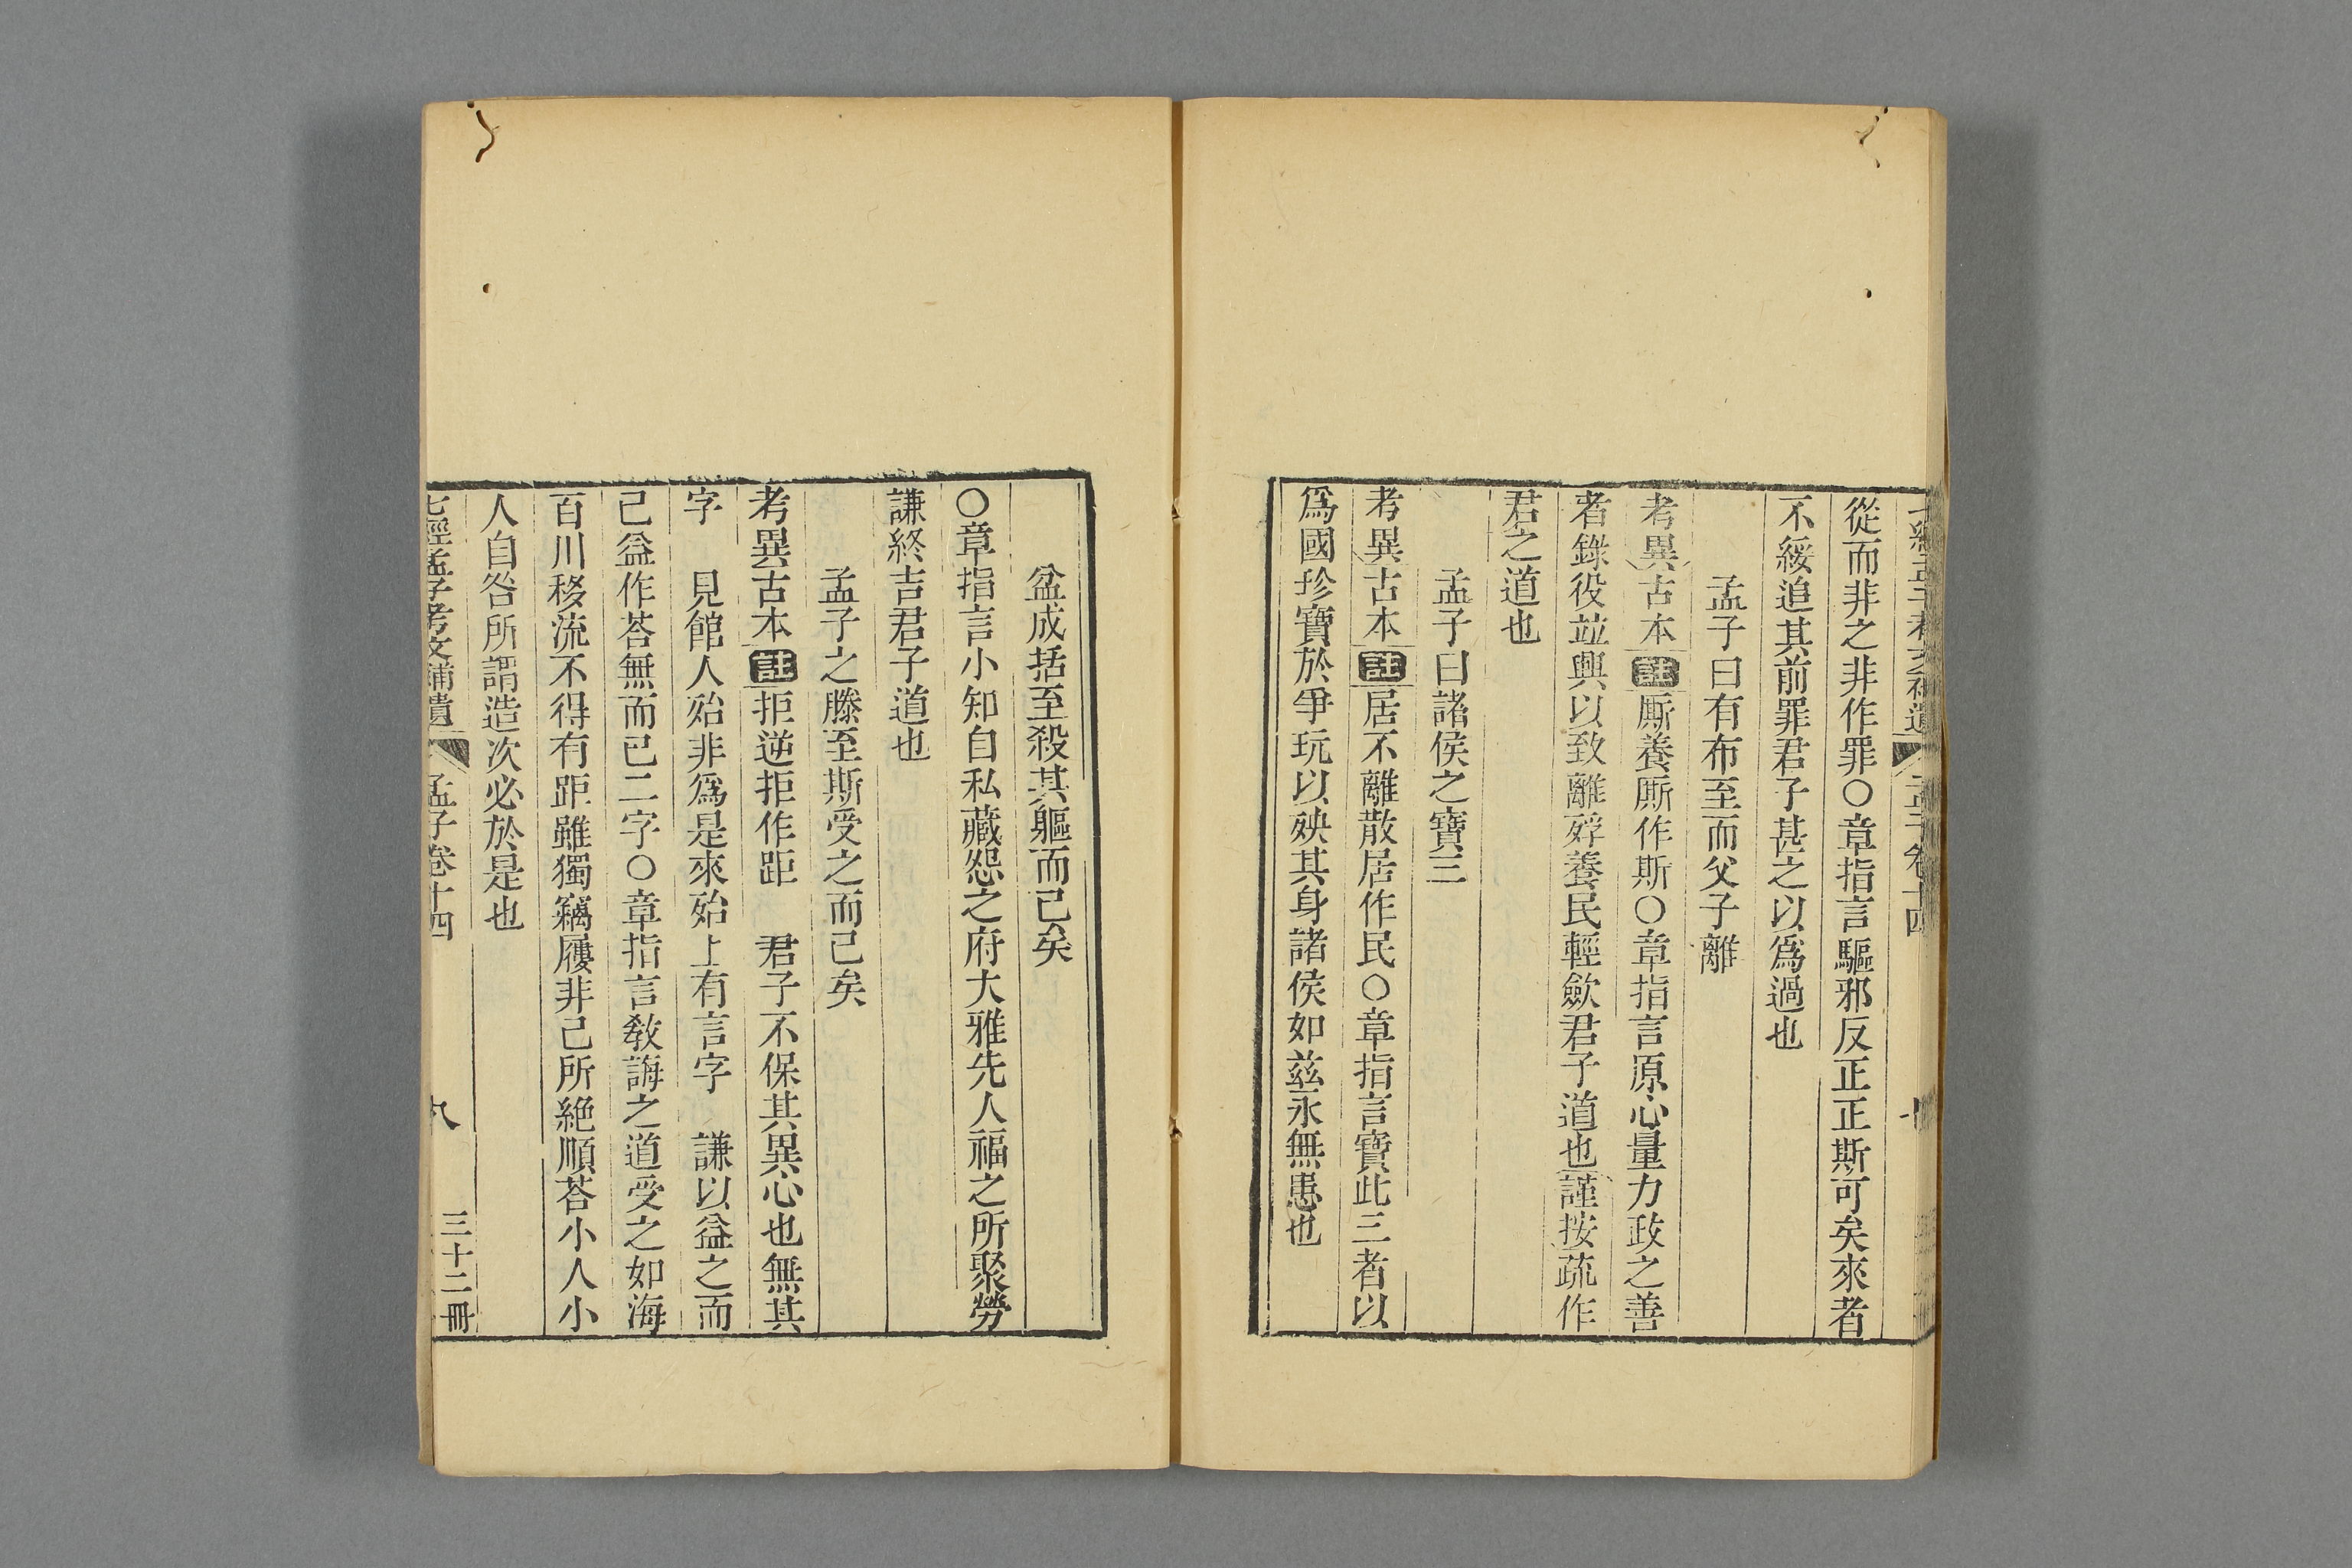 從而非之非作罪○章指言驅邪反正正斯可矣來者
不綏追其前罪君子甚之以爲過也
孟子曰有布至而父子離
考異古本註厮養厮作斯○章指言原心量力政之善
者錄役並興以致離殍養民輕歛君子道也謹按疏作
君之道也
孟子曰諸侯之寶三
考異古本註居不離散居作民○章指言寶此三者以
爲國珍寶於爭玩以殃其身諸侯如兹永無患也
盆成括至殺其軀而已矣
○章指言小知自私藏怨之府大雅先人福之所聚勞
謙終吉君子道也
孟子之滕至斯受之而已矣
考異古本註拒逆拒作距 君子不保其異心也無其
字 見館人殆非爲是來殆上有言字 謙以益之而
己益作荅無而已二字○章指言教誨之道受之如海
百川移流不得有距雖獨竊屨非己所絶順荅小人小
人自咎所謂造次必於是也
七經孟子考文補遺 孟子卷十四 八 三十二冊